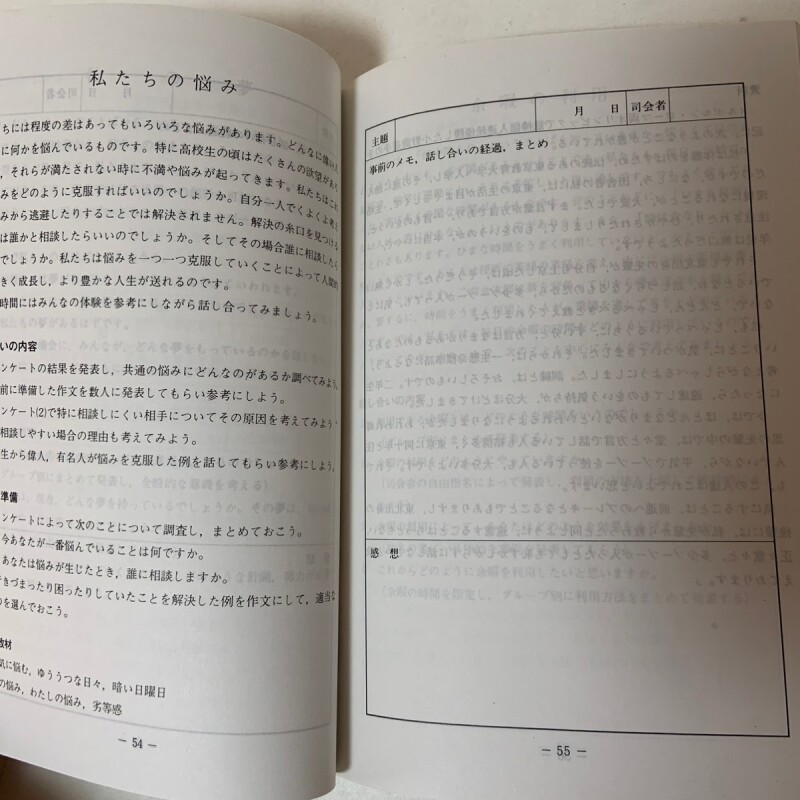 私たちの悩み
ちには程度の差はあってもいろいろな悩みがあります。どんなに偉い人
に何かを悩んでいるものです。特に高校生の頃はたくさんの欲望があり
，それらが満たされない時に不満や悩みが起ってきます。私たちはこれ
みをどのように克服すればいいのでしょうか。自分一人でくよくよ考え
みから逃避したりすることでは解決されません。解決の糸口を見つける
は誰かと相談したらいいのでしょうか。そしてその場合誰に相談したら
でしょうか。私たちは悩みを一つ一つ克服していくことによって人間的
きく成長し，より豊かな人生が送れるのです。
時間にはみんなの体験を参考にしながら話し合ってみましょう。
いの内容
ンケートの結果を発表し，共通の悩みにどんなのがあるか調べてみよう。
前に準備した作文を数人に発表してもらい参考にしよう。
ンケート(2)で特に相談しにくい相手についてその原因を考えてみよう。
相談しやすい場合の理由も考えてみよう。
生から偉人，有名人が悩みを克服した例を話してもらい参考にしよう。
準備
ンケートによって次のことについて調査し，まとめておこう。
今あなたが一番悩んでいることは何ですか。
あなたは悩みが生じたとき，誰に相談しますか。
きづまったり困ったりしていたことを解決した例を作文にして，適当な
を選んでおこう。
教材
気に悩む，ゆううつな日々，暗い日曜日
の悩み，わたしの悩み，劣等感
— 54 —
主題 月 日 司会者
事前のメモ，話し合いの経過，まとめ
感想
— 55 —